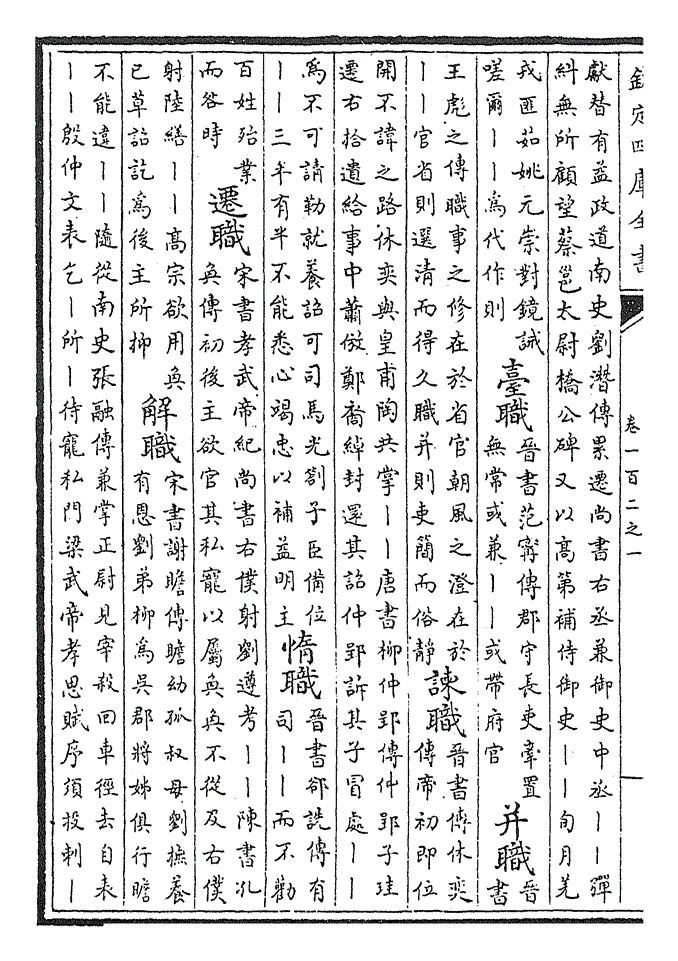 欽定四庫全書
卷一百二之一
獻替有益政道南史劉潛傳累遷尚書右丞兼御史中丞丨丨彈
糾無所顧望蔡邕太尉橋公碑又以高第補侍御史丨丨旬月羌
戎匪茹姚元崇對鏡誡
嗟爾丨丨爲代作則
臺職
晉書范甯傳郡守長吏牽置
無常或兼丨丨或帶府官
并職
晉
書
王彪之傳職事之修在於省官朝風之澄在於
丨丨官省則選清而得久職并則吏簡而俗靜
諫職
晉書傅休奕
傳帝初即位
開不諱之路休奕與皇甫陶共掌丨丨唐書柳仲郢傳仲郢子珪
遷右拾遺給事中蕭倣鄭裔綽封還其詔仲郢訴其子冒處丨丨
爲不可請勒就養詔可司馬光劄子臣備位
丨丨三年有半不能悉心竭忠以補益明主
惰職
晉書郤詵傳有
司丨丨而不勸
百姓殆業
而咎時
遷職
宋書孝武帝紀尚書右僕射劉遵考丨丨陳書孔
奐傳初後主欲官其私寵以屬奐奐不從及右僕
射陸繕丨丨高宗欲用奐
已草詔訖爲後主所抑
解職
宋書謝瞻傳瞻幼孤叔母劉撫養
有恩劉弟柳爲吳郡將姊俱行瞻
不能違丨丨隨從南史張融傳兼掌正尉見宰殺回車徑去自表
丨丨殷仲文表乞丨所丨待寵私門梁武帝孝思賦序須投刺丨